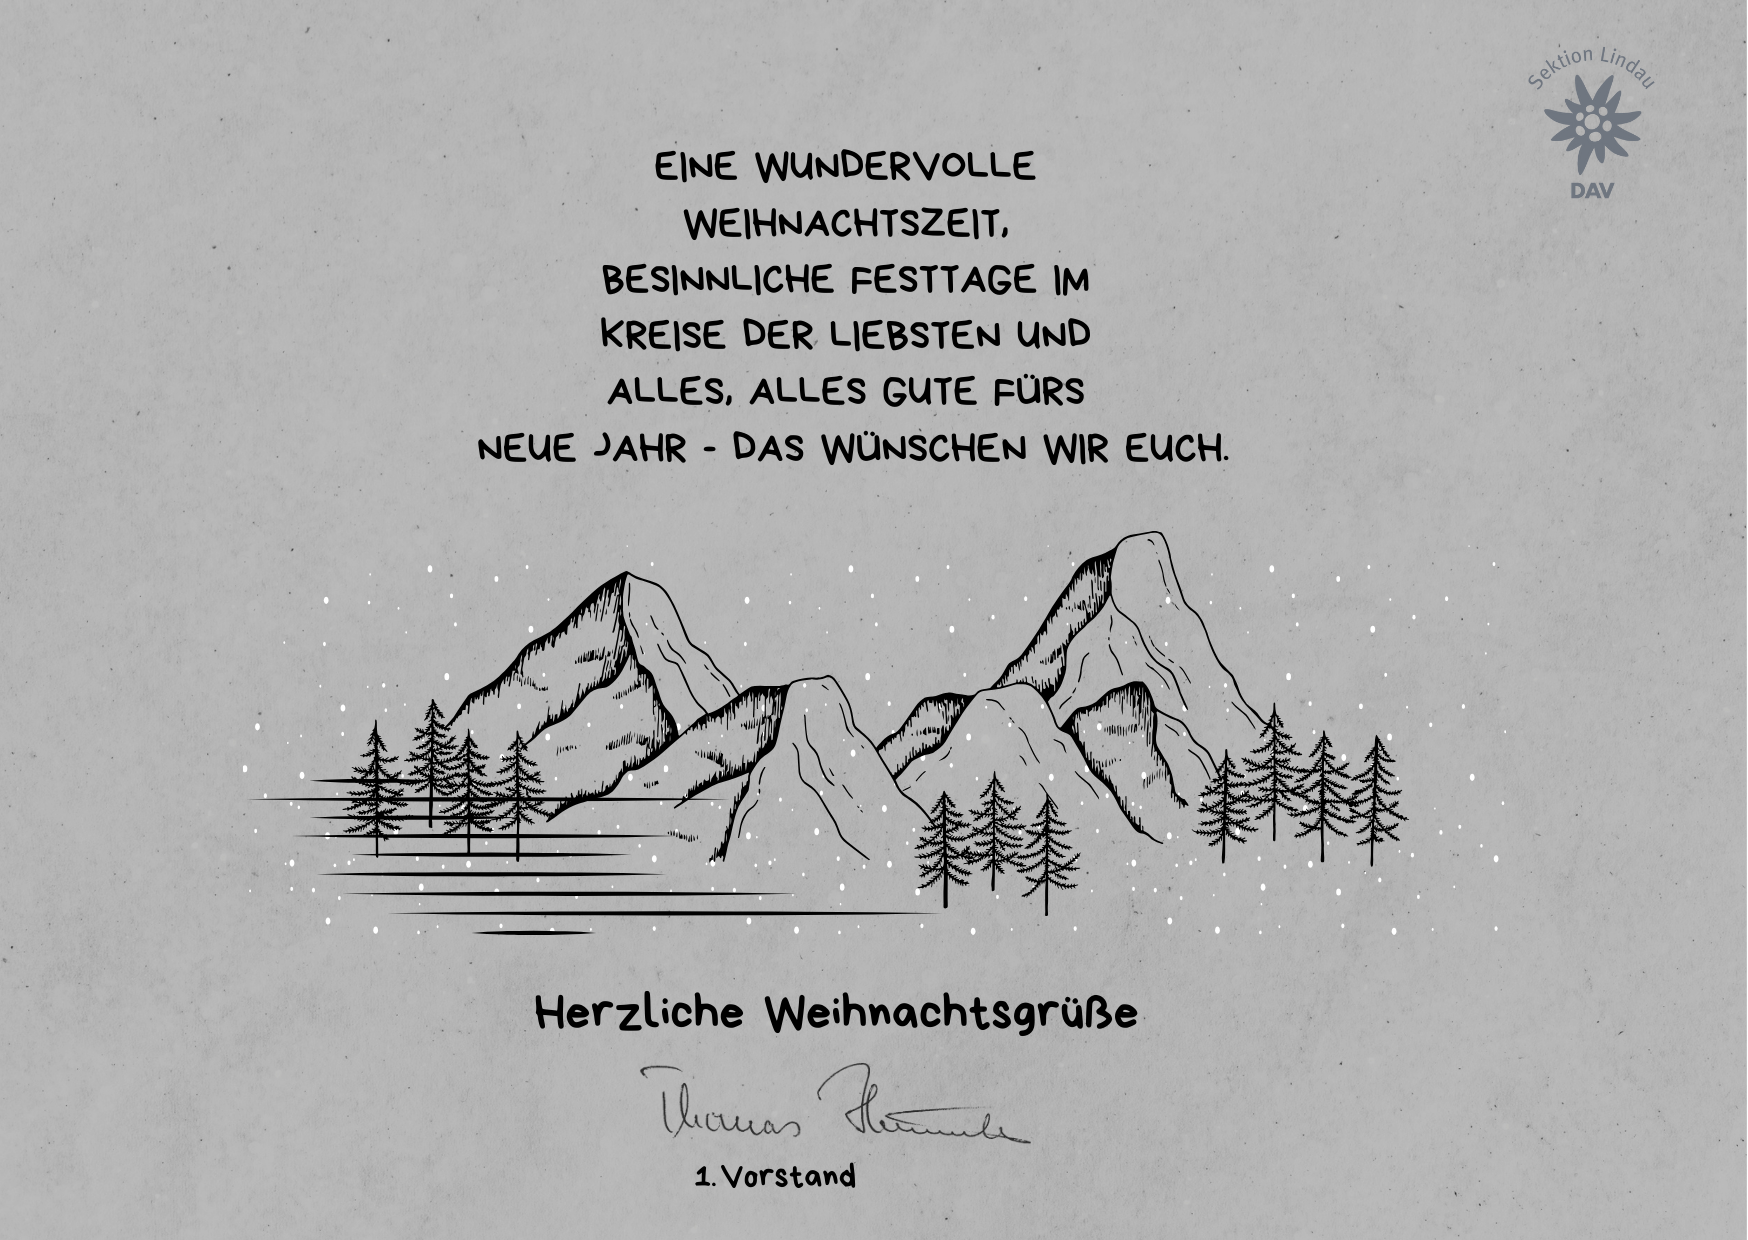 Sektion Lindau
DAV
EINE WUNDERVOLLE
WEIHNACHTSZEIT,
BESINNLICHE FESTTAGE IM
KREISE DER LIEBSTEN UND
ALLES, ALLES GUTE FÜRS
NEUE JAHR - DAS WÜNSCHEN WIR EUCH.
Herzliche Weihnachtsgrüße
Thomas
1. Vorstand